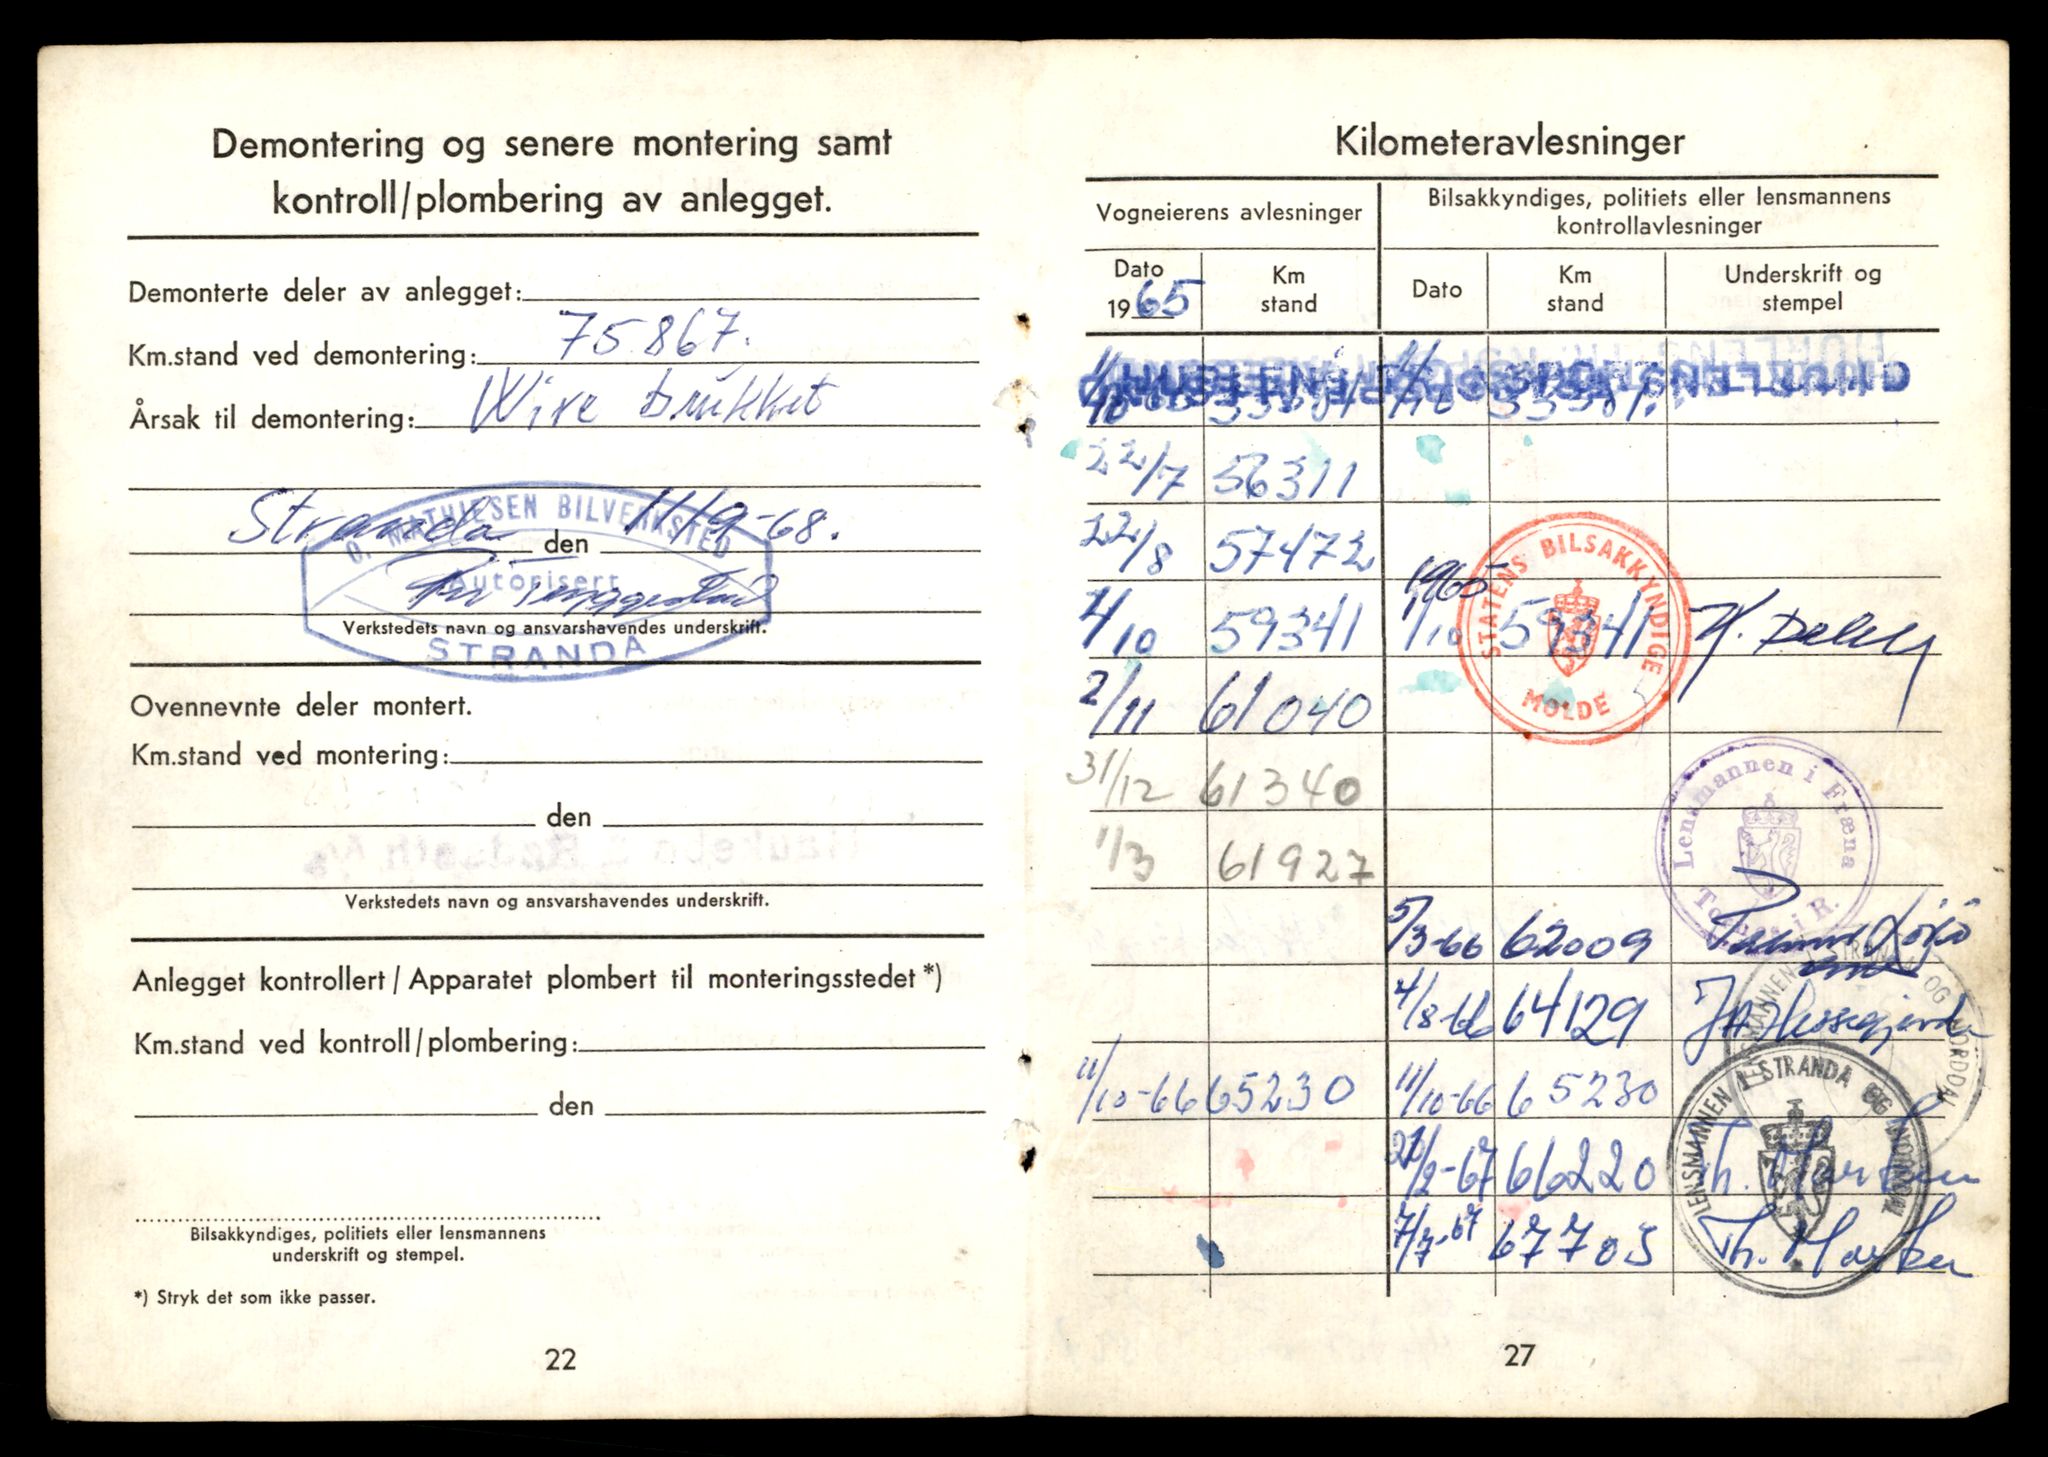 Demontering og senere montering samt
kontroll/plombering av anlegget.
Demonterte deler av anlegget:
Km.stand ved demontering: 75867.
Årsak til demontering: Wire brukket
Stranda den 11/9-68.
O. MATHIESEN BILVERKSTED
Autorisert
STRANDA
Verkstedets navn og ansvarshavendes underskrift.
Ovennevnte deler montert.
Km.stand ved montering:
den
Verkstedets navn og ansvarshavendes underskrift.
Anlegget kontrollert / Apparatet plombert til monteringsstedet *)
Km.stand ved kontroll/plombering:
den
Bilsakkyndiges, politiets eller lensmannens
underskrift og stempel.
*) Stryk det som ikke passer.
22
Kilometeravlesninger
Vogneierens avlesninger
Bilsakkyndiges, politiets eller lensmannens
kontrollavlesninger
Dato
1965
Km
stand
Dato
Km
stand
Underskrift og
stempel
22/7 56311
22/8 57472
1965
1/10 59341 1/10 59341
STATENS BILSAKKYNDIGE
MOLDE
2/11 61040
31/12 61340
1/3 61927
Lensmannen i Fræna
5/3-66 62009
4/8-66 64129
LENSMANNEN I STRANDA OG NORDDAL
11/10-66 65230 11/10-66 65230
LENSMANNEN I STRANDA OG NORDDAL
/2-67 66220 Th.
7/7-67 67703 Th.
27